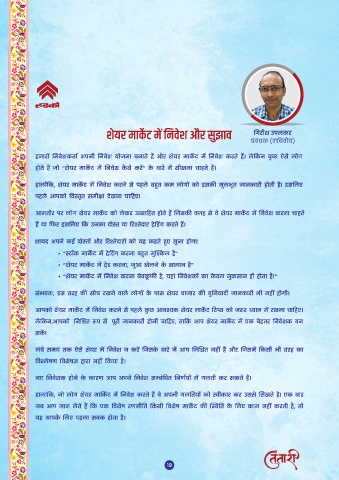 हडको
शेयर मार्केट में निवेश और सुझाव
गिरीश उपलकर
प्रबंधक (सचिवीय)
हजारों निवेशकर्ता अपनी निवेश योजना बनाते हैं और शेयर मार्केट में निवेश करते हैं। लेकिन कुछ ऐसे लोग
होते हैं जो "शेयर मार्केट में निवेश कैसे करें" के बारे में सीखना चाहते हैं।
हालाँकि, शेयर मार्केट में निवेश करने से पहले बहुत कम लोगों को इसकी मूलभूत जानकारी होती है। इसलिए
पहले आपको विस्तृत समीक्षा देखना चाहिए।
आमतौर पर लोग शेयर मार्केट को लेकर उत्साहित होते हैं जिसकी वजह से वे शेयर मार्केट में निवेश करना चाहते
हैं या फिर इसलिए कि उनका दोस्त या रिश्तेदार ट्रेडिंग करते हैं।
शायद आपने कई दोस्तों और रिश्तेदारों को यह कहते हुए सुना होगा:
• "स्टॉक मार्केट में ट्रेडिंग करना बहुत मुश्किल है"
• "शेयर मार्केट में ट्रेड करना, जुआ खेलने के समान है"
• "शेयर मार्केट में निवेश करना बेवकूफी है, यहां निवेशकों का केवल नुकसान ही होता है।"
संभवतः, इस तरह की सोच रखने वाले लोगों के पास शेयर बाजार की बुनियादी जानकारी भी नहीं होगी।
आपको शेयर मार्केट में निवेश करने से पहले कुछ आवश्यक शेयर मार्केट टिप्स को जरूर ध्यान में रखना चाहिए।
लेकिन,आपको निश्चित रूप से पूरी जानकारी होनी चाहिए, ताकि आप शेयर मार्केट में एक बेहतर निवेशक बन
सकें।
लंबे समय तक ऐसे शेयर में निवेश न करें जिसके बारे में आप निश्चित नहीं हैं और जिसमें किसी भी तरह का
विश्लेषण विशेषज्ञ द्वारा नहीं किया है।
नए निवेशक होने के कारण आप अपने निवेश सम्बंधित निर्णयों में गलती कर सकते हैं।
हालांकि, जो लोग शेयर मार्केट में निवेश करते हैं वे अपनी गलतियों को स्वीकार कर उससे सिखते हैं। एक बार
जब आप जान लेते हैं कि एक विशेष रणनीति किसी विशेष मार्केट की स्थिति के लिए काम नहीं करती है, तो
यह आपके लिए पहला सबक होता है।
19